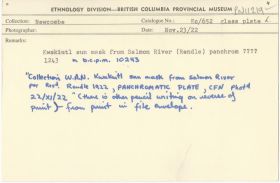 ETHNOLOGY DIVISION—BRITISH COLUMBIA PROVINCIAL MUSEUM PN11219
Collection Newcombe Catalogue No. Eo/652 class plate
Photographer Date: Nov.23/22
Remarks
Kwakiutl sun mask from Salmon River (Rendle) panchrom ????
1243 m b.c.p.m. 10243
"Collection W.A.N. Kwakiutl sun mask from Salmon River
per Revd. Rendle 1922, PANCHROMATIC PLATE, CFN Photd
22/XI/22." (there is other pencil writing on reverse of
print) - from print in file envelope.